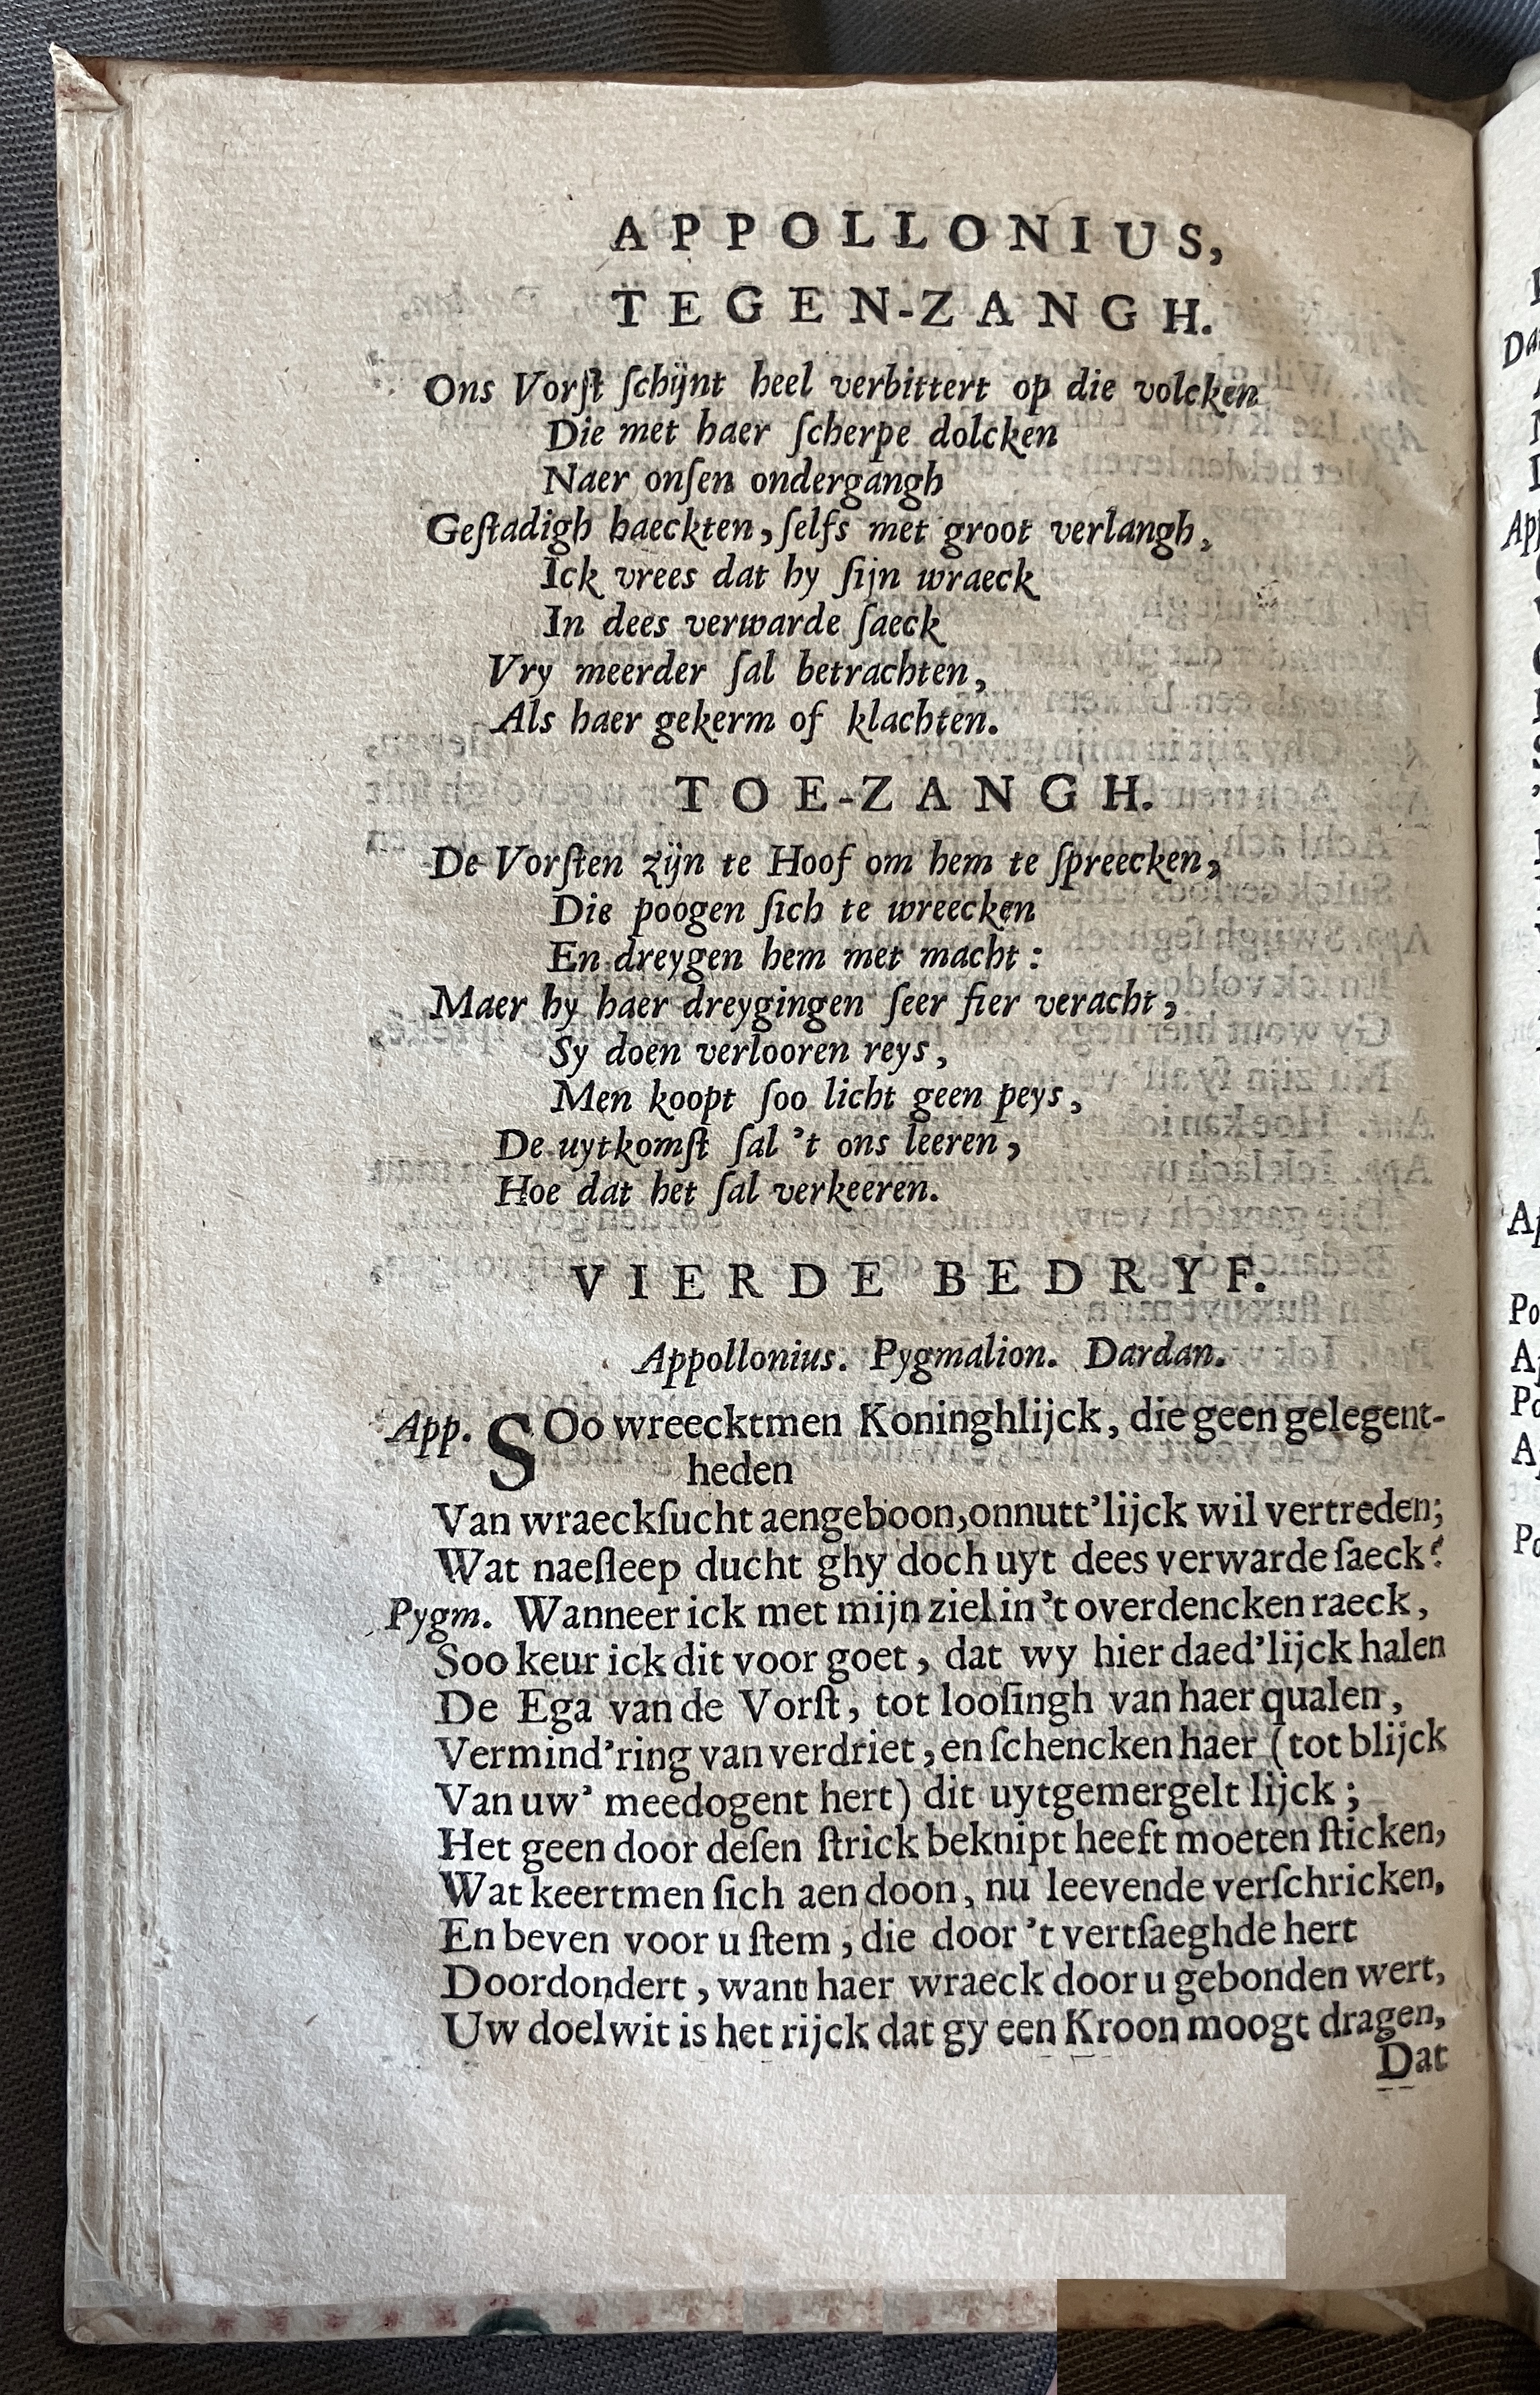 APPOLLONIUS,
TEGEN-ZANGH.
Ons Vorſt ſchijnt heel verbittert op die volcken
Die met haer ſcherpe dolcken
Naer onſen ondergangh
Geſtadigh haeckten, ſelfs met groot verlangh,
Ick vrees dat hy ſijn wraeck
In dees verwarde ſaeck
Vry meerder ſal betrachten,
Als haer gekerm of klachten.
TOE-ZANGH.
De Vorſten zijn te Hoof om hem te ſpreecken,
Die poogen ſich te wreecken
En dreygen hem met macht:
Maer hy haer dreygingen ſeer fier veracht,
Sy doen verlooren reys,
Men koopt ſoo licht geen peys,
De uytkomſt ſal 't ons leeren,
Hoe dat het ſal verkeeren.
VIERDE BEDRYF.
Appollonius. Pygmalion. Dardan.
App. SOo wreecktmen Koninghlijck, die geen gelegent-
heden
Van wraeckſucht aengeboon, onnutt'lijck wil vertreden;
Wat naeſleep ducht ghy doch uyt dees verwarde ſaeck?
Pygm. Wanneer ick met mijn ziel in 't overdencken raeck,
Soo keur ick dit voor goet, dat wy hier daed'lijck halen
De Ega van de Vorſt, tot looſingh van haer qualen,
Vermind'ring van verdriet, en ſchencken haer (tot blijck
Van uw' meedogent hert) dit uytgemergelt lijck;
Het geen door deſen ſtrick beknipt heeft moeten ſticken,
Wat keertmen ſich aen doon, nu leevende verſchricken,
En beven voor u ſtem, die door 't vertſaeghde hert
Doordondert, want haer wraeck door u gebonden wert,
Uw doelwit is het rijck dat gy een Kroon moogt dragen,
Dat